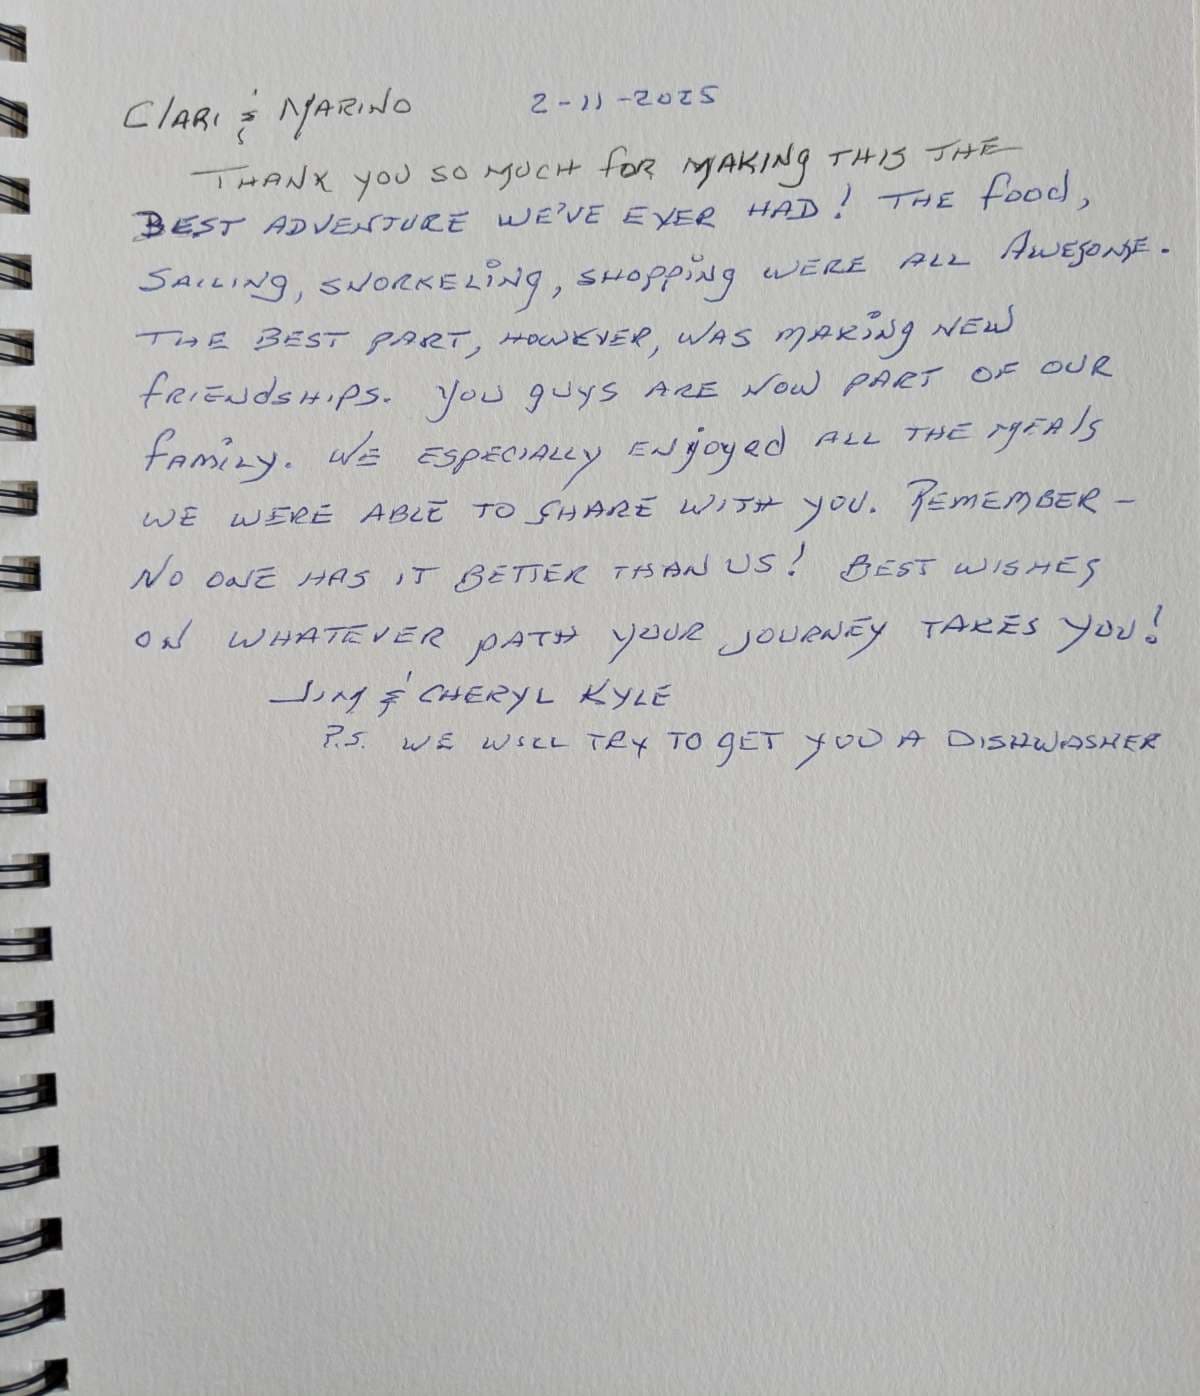 Clari & Marino 2-11-2025
Thank you so much for making this the
best adventure we've ever had! The food,
sailing, snorkeling, shopping were all awesome.
The best part, however, was making new
friendships. You guys are now part of our
family. We especially enjoyed all the meals
we were able to share with you. Remember -
No one has it better than us! Best wishes
on whatever path your journey takes you!
Jim & Cheryl Kyle
P.S. we will try to get you a dishwasher